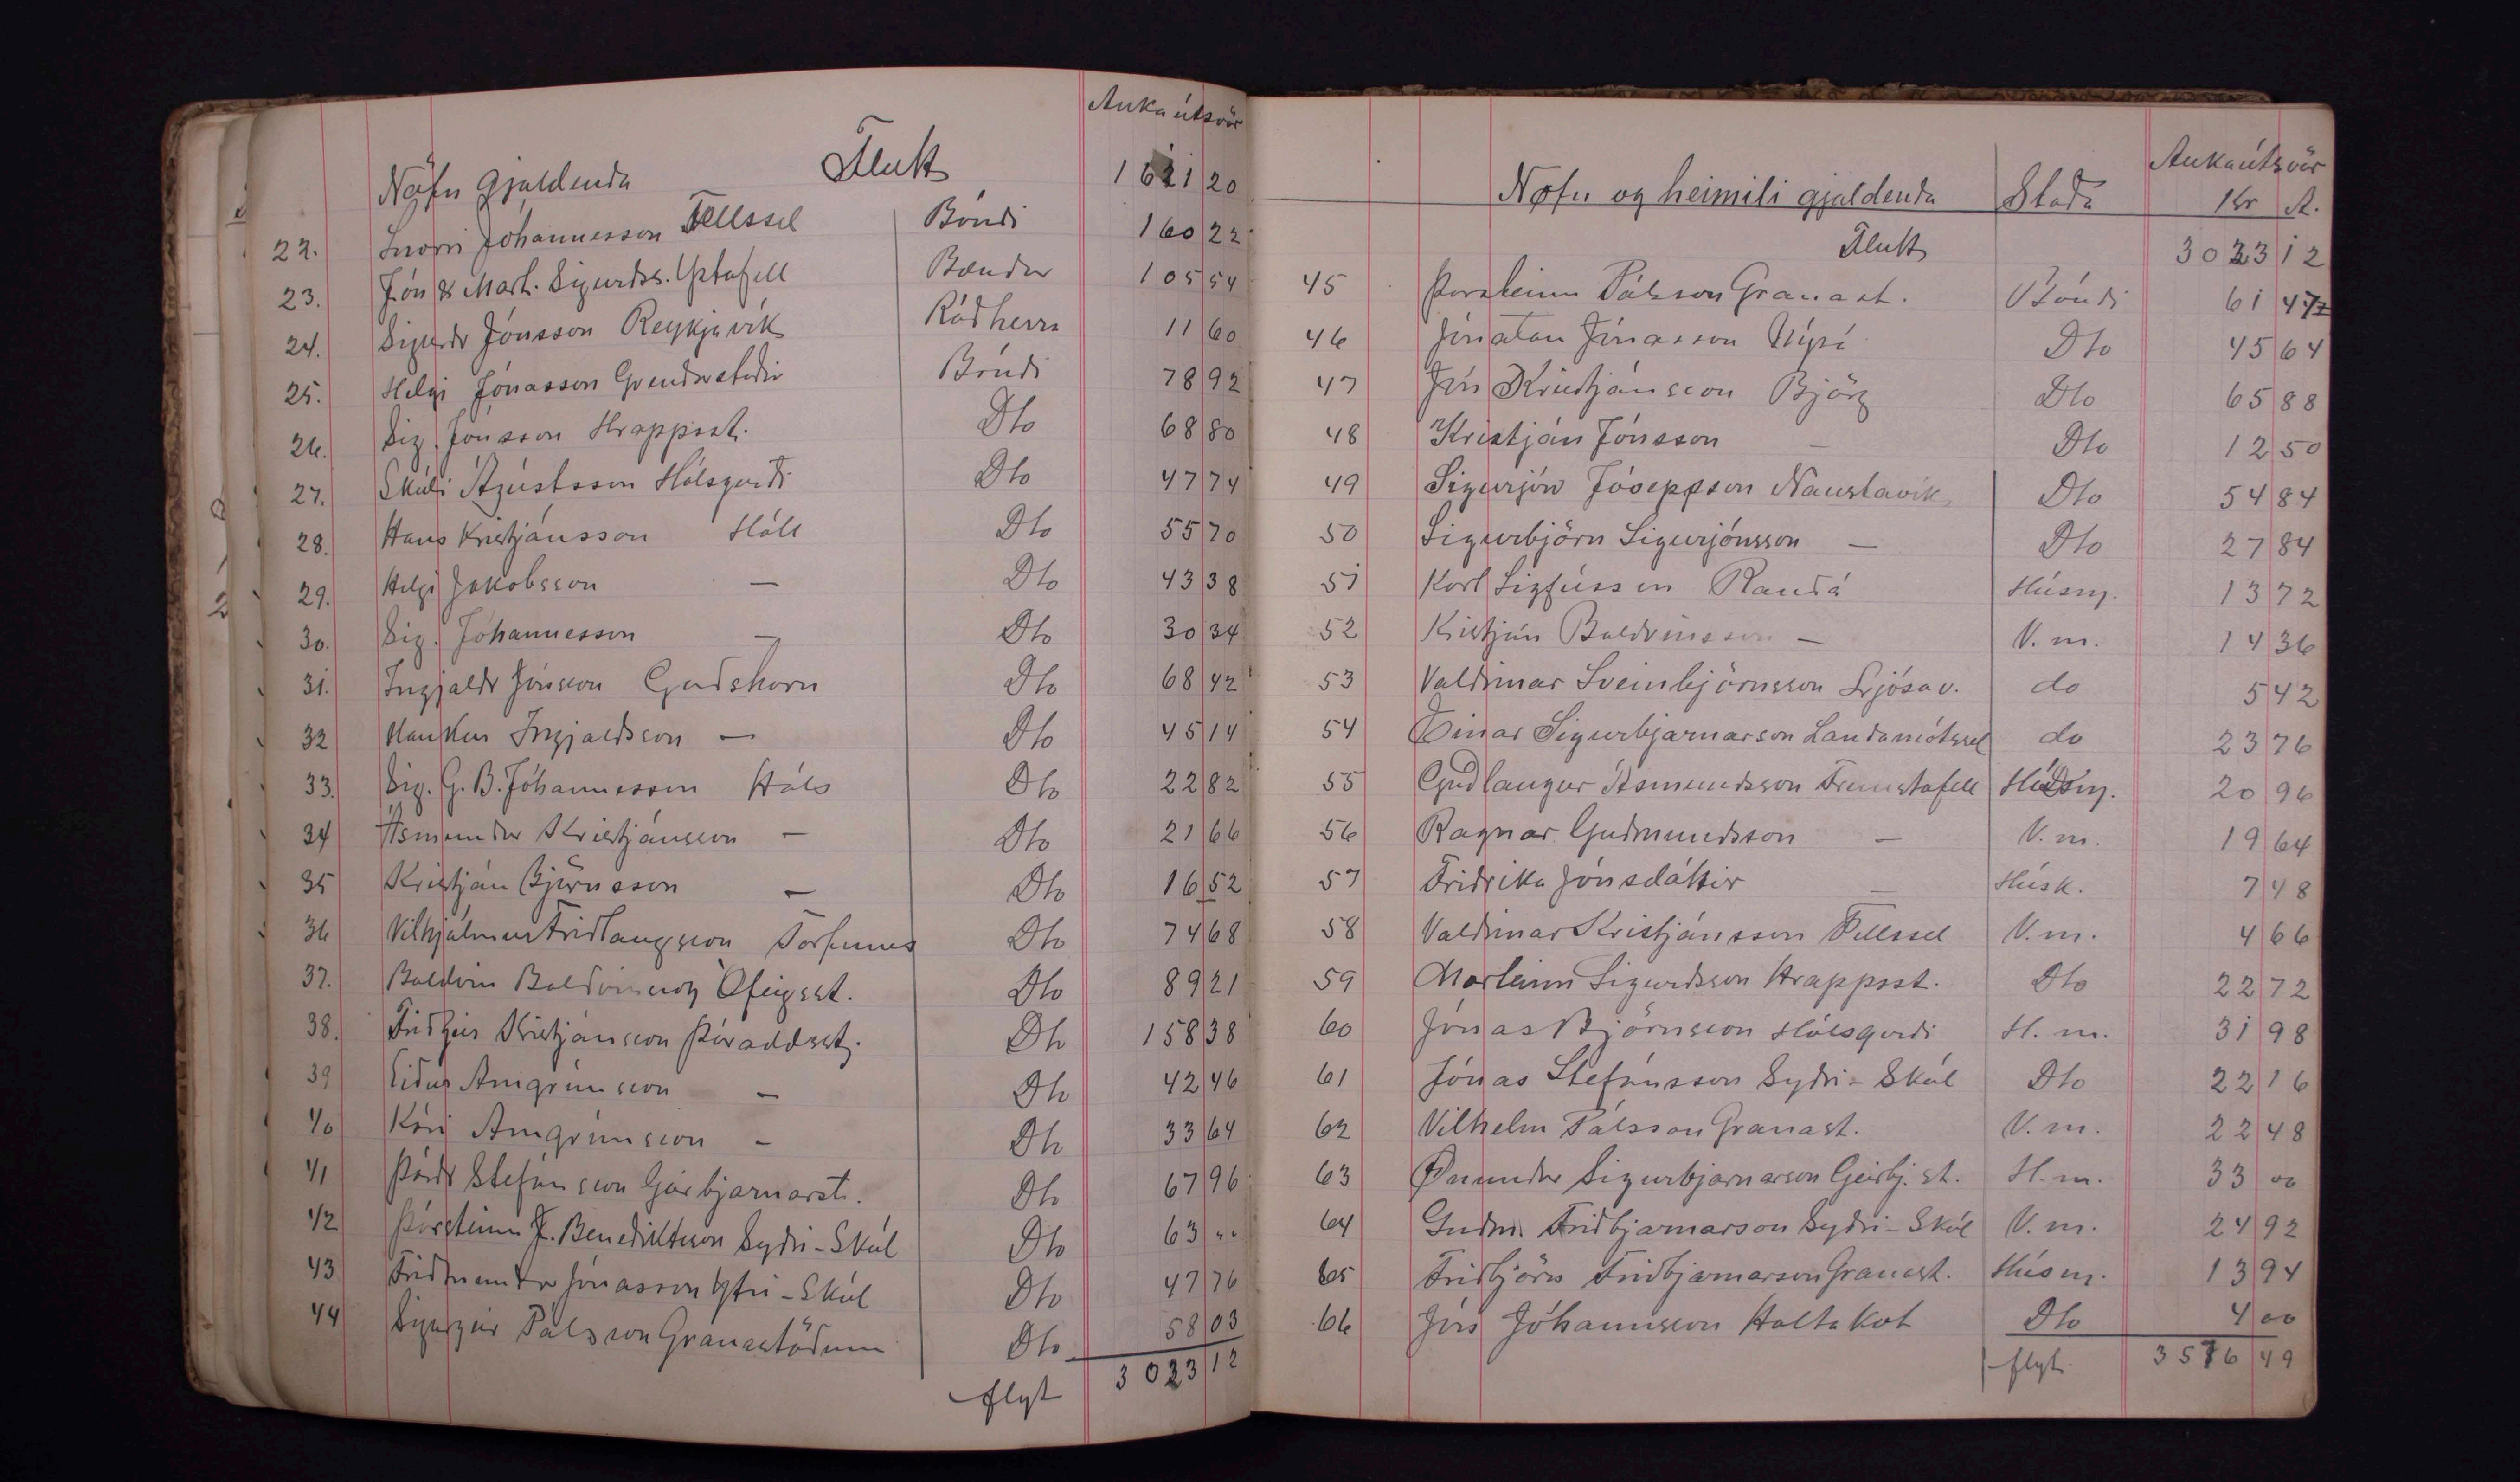 Aukaútsvör
Nöfn gjaldenda Flutt 1621 20
22. Snorri Jóhannesson Fellssel Bóndi 160 22
23. Jón & Mart. Sigurdss. Ystafell Bændur 105 54
24. Sigurdr Jónsson Reykjavík Rádherra 11 60
25. Helgi Jónasson Gvendarstödir Bóndi 78 92
26. Sig. Jónsson Hrappsst. Dto 68 80
27. Skúli Ágústsson Hólsgerdi Dto 47 74
28. Hans Kristjánsson Hóll Dto 55 70
29. Helgi Jakobsson — Dto 43 38
30. Sig. Jóhannesson — Dto 30 34
31. Ingjaldr Jónsson Gudshorn Dto 68 42
32 Haukur Ingjaldsson — Dto 45 14
33. Sig. G. B. Jóhannesson Háls Dto 22 82
34 Ásmundur Kristjánsson — Dto 21 66
35 Kristján Björnsson — Dto 16 52
36 Vilhjálmur Fridlaugsson Torfunes Dto 74 68
37. Baldvin Baldvinsson Ófeigsst. Dto 89 21
38. Fridgeir Kristjánsson Þóroddsst. Dto 158 38
39 Eidur Arngrímsson — Dto 42 46
40 Kári Arngrímsson — Dto 33 64
41 Þórdr Stefánsson Geirbjarnarst. Dto 67 96
42 Þórsteinn J. Benediktsson Sydri-Skál Dto 63 ..
43 Fridmundur Jónasson Ytri-Skál Dto 47 76
44 Sigurgeir Pálsson Granastödum Dto 58 03
flyt 3023 12
Aukaútsvör
Nöfn og heimili gjaldenda Stada Kr A.
Flutt 3023 12
45 Þorsteinn Pálsson Granast. Bóndi 61 47
46 Jónatan Jónasson Nípá Dto 45 64
47 Jón Kristjánsson Björg Dto 65 88
48 Kristján Jónsson — Dto 12 50
49 Sigurjón Jósepsson Naustavík Dto 54 84
50 Sigurbjörn Sigurjónsson — Dto 27 84
51 Karl Sigfússon Raudá Húsm. 13 72
52 Kristján Baldvinsson — V. m. 14 36
53 Valdimar Sveinbjörnsson Ljósav. do 5 42
54 Einar Sigurbjarnarson Landamótssel do 23 76
55 Gudlaugur Ásmundsson Fremstafell Húsm. 20 96
56 Ragnar Gudmundsson — V. m. 19 64
57 Fridrika Jónsdóttir — Húsk. 7 48
58 Valdimar Kristjánsson Fellssel V. m. 4 66
59 Marteinn Sigurdsson Hrappsst. Dto 22 72
60 Jónas Björnsson Hólsgerdi H. m. 31 98
61 Jónas Stefánsson Sydri-Skál Dto 22 16
62 Vilhelm Pálsson Granast. V. m. 22 48
63 Önundur Sigurbjarnarson Geirbj. st. H. m. 33 00
64 Gudm. Fridbjarnarson Sydri-Skál V. m. 24 92
65 Fridbjörn Fridbjarnarson Granast. Húsm. 13 94
66 Jón Jóhannsson Holtakot Dto 4 00
flyt 3576 49